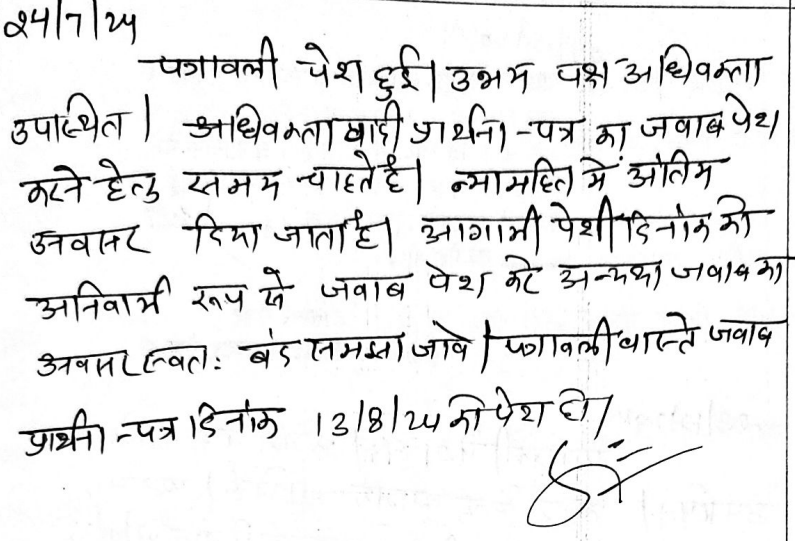 24/7/24
पत्रावली पेश हुई। उभय पक्ष अधिवक्ता
उपस्थित। अधिवक्ता वादी प्रार्थना-पत्र का जवाब पेश
करने हेतु समय चाहते है। न्यायहित में अंतिम
अवसर दिया जाता है। आगामी पेशी दिनांक को
अनिवार्य रूप से जवाब पेश करे अन्यथा जवाब का
अवसर स्वत: बंद समझा जावे। पत्रावली वास्ते जवाब
प्रार्थना-पत्र दिनांक 13/8/24 को पेश हो।